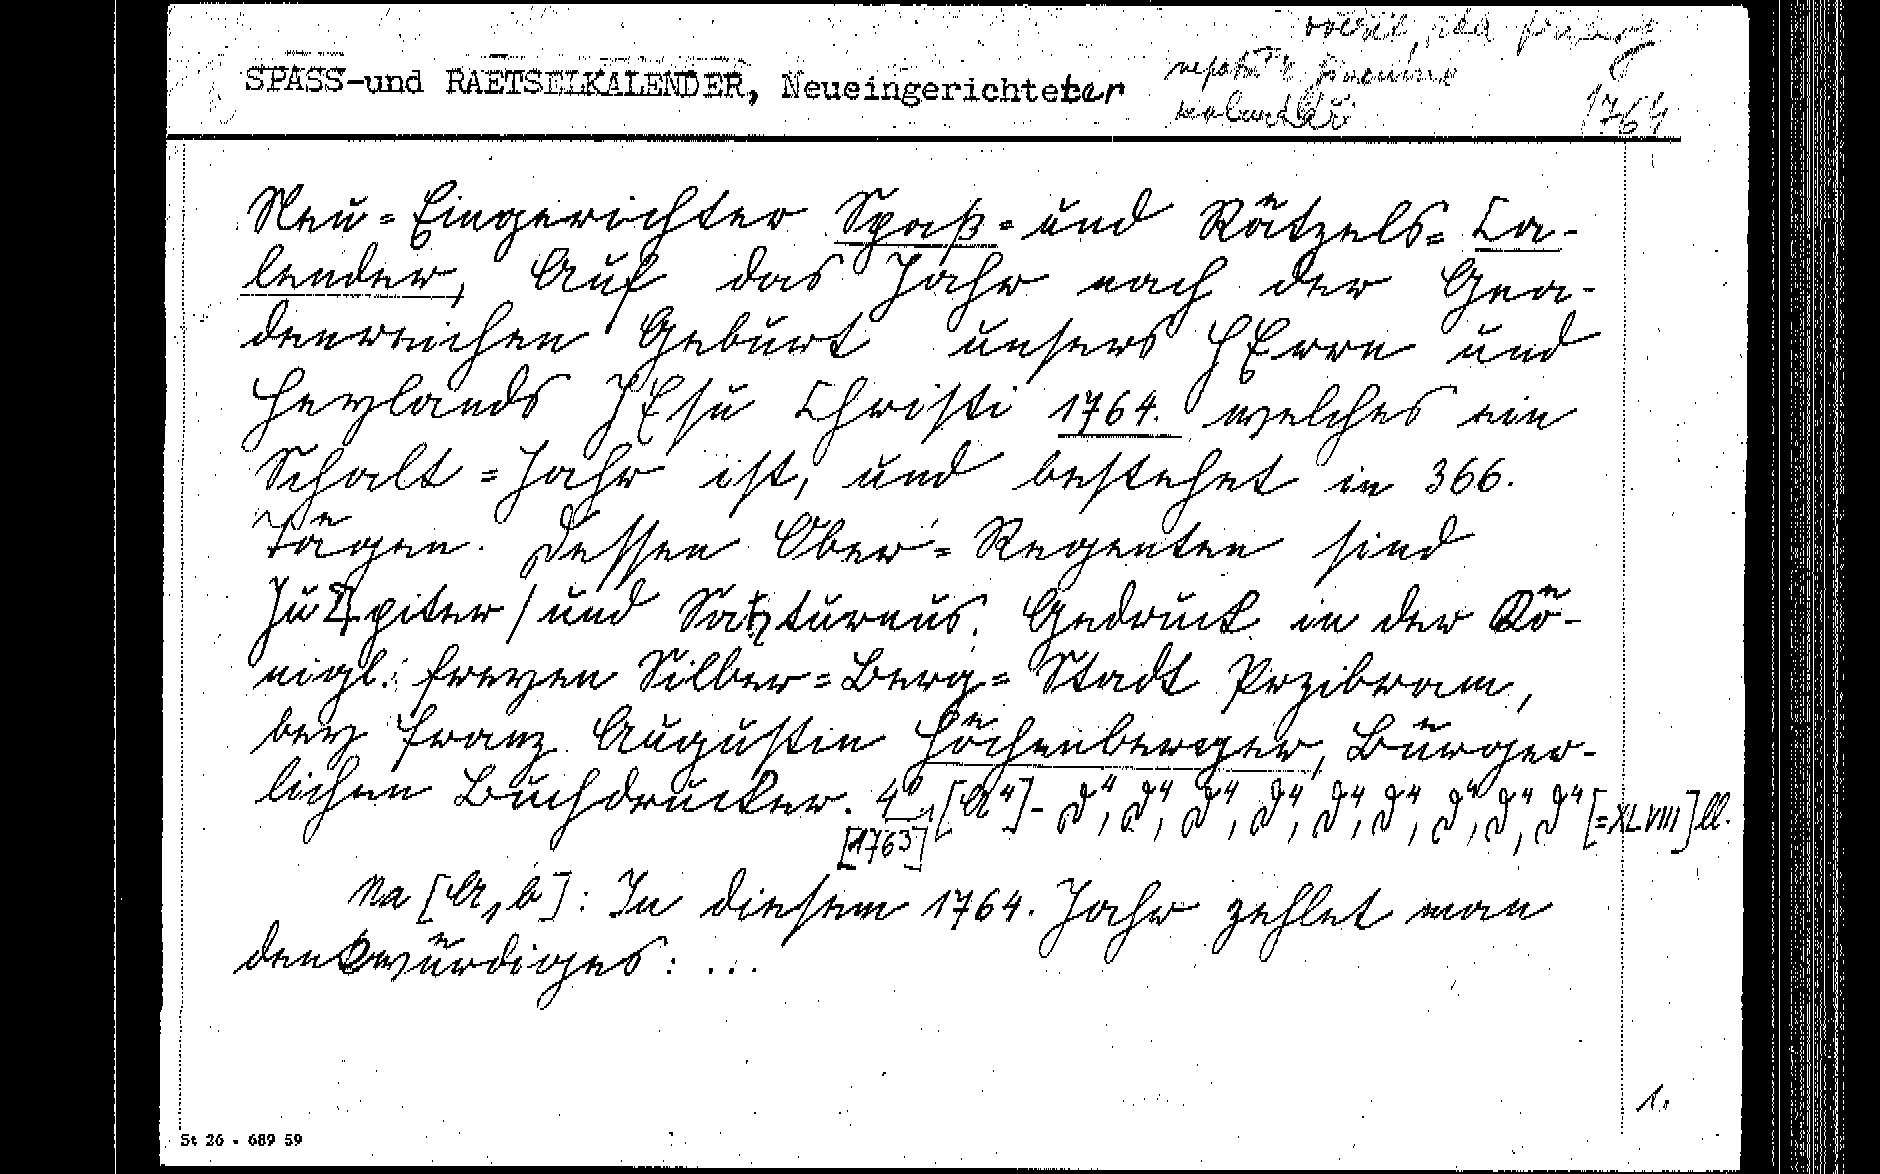 SPASS-und RAETSELKALENDER, Neueingerichteter
1764
Neu=Eingerichter Spaß=und Rätzels=Ca-
lender, Auf das Jahr nach der Gna-
denreichen Geburt unsers HErrn und
Heylands JEsu Christi 1764. welches ein
Schalt=Jahr ist, und bestehet in 366.
Tägen. Dessen Ober=Regenten sind
Ju♃piter / und Sa♄turnus. Gedruck in der Kö-
nigl: freyen Silber=Berg=Stadt Przibram,
bey Franz Augustin Höchenberger, Bürger-
lichen Buchdrucker. 4°, [A⁴]- J⁴, J⁴, J⁴, J⁴, J⁴, J⁴, J⁴, J⁴, J⁴ [=XLVIII] ll.
[1763]
Na [A,b]: In diesem 1764. Jahr zehlet man
denkwürdiges: ...
1.
St 26 - 689 59